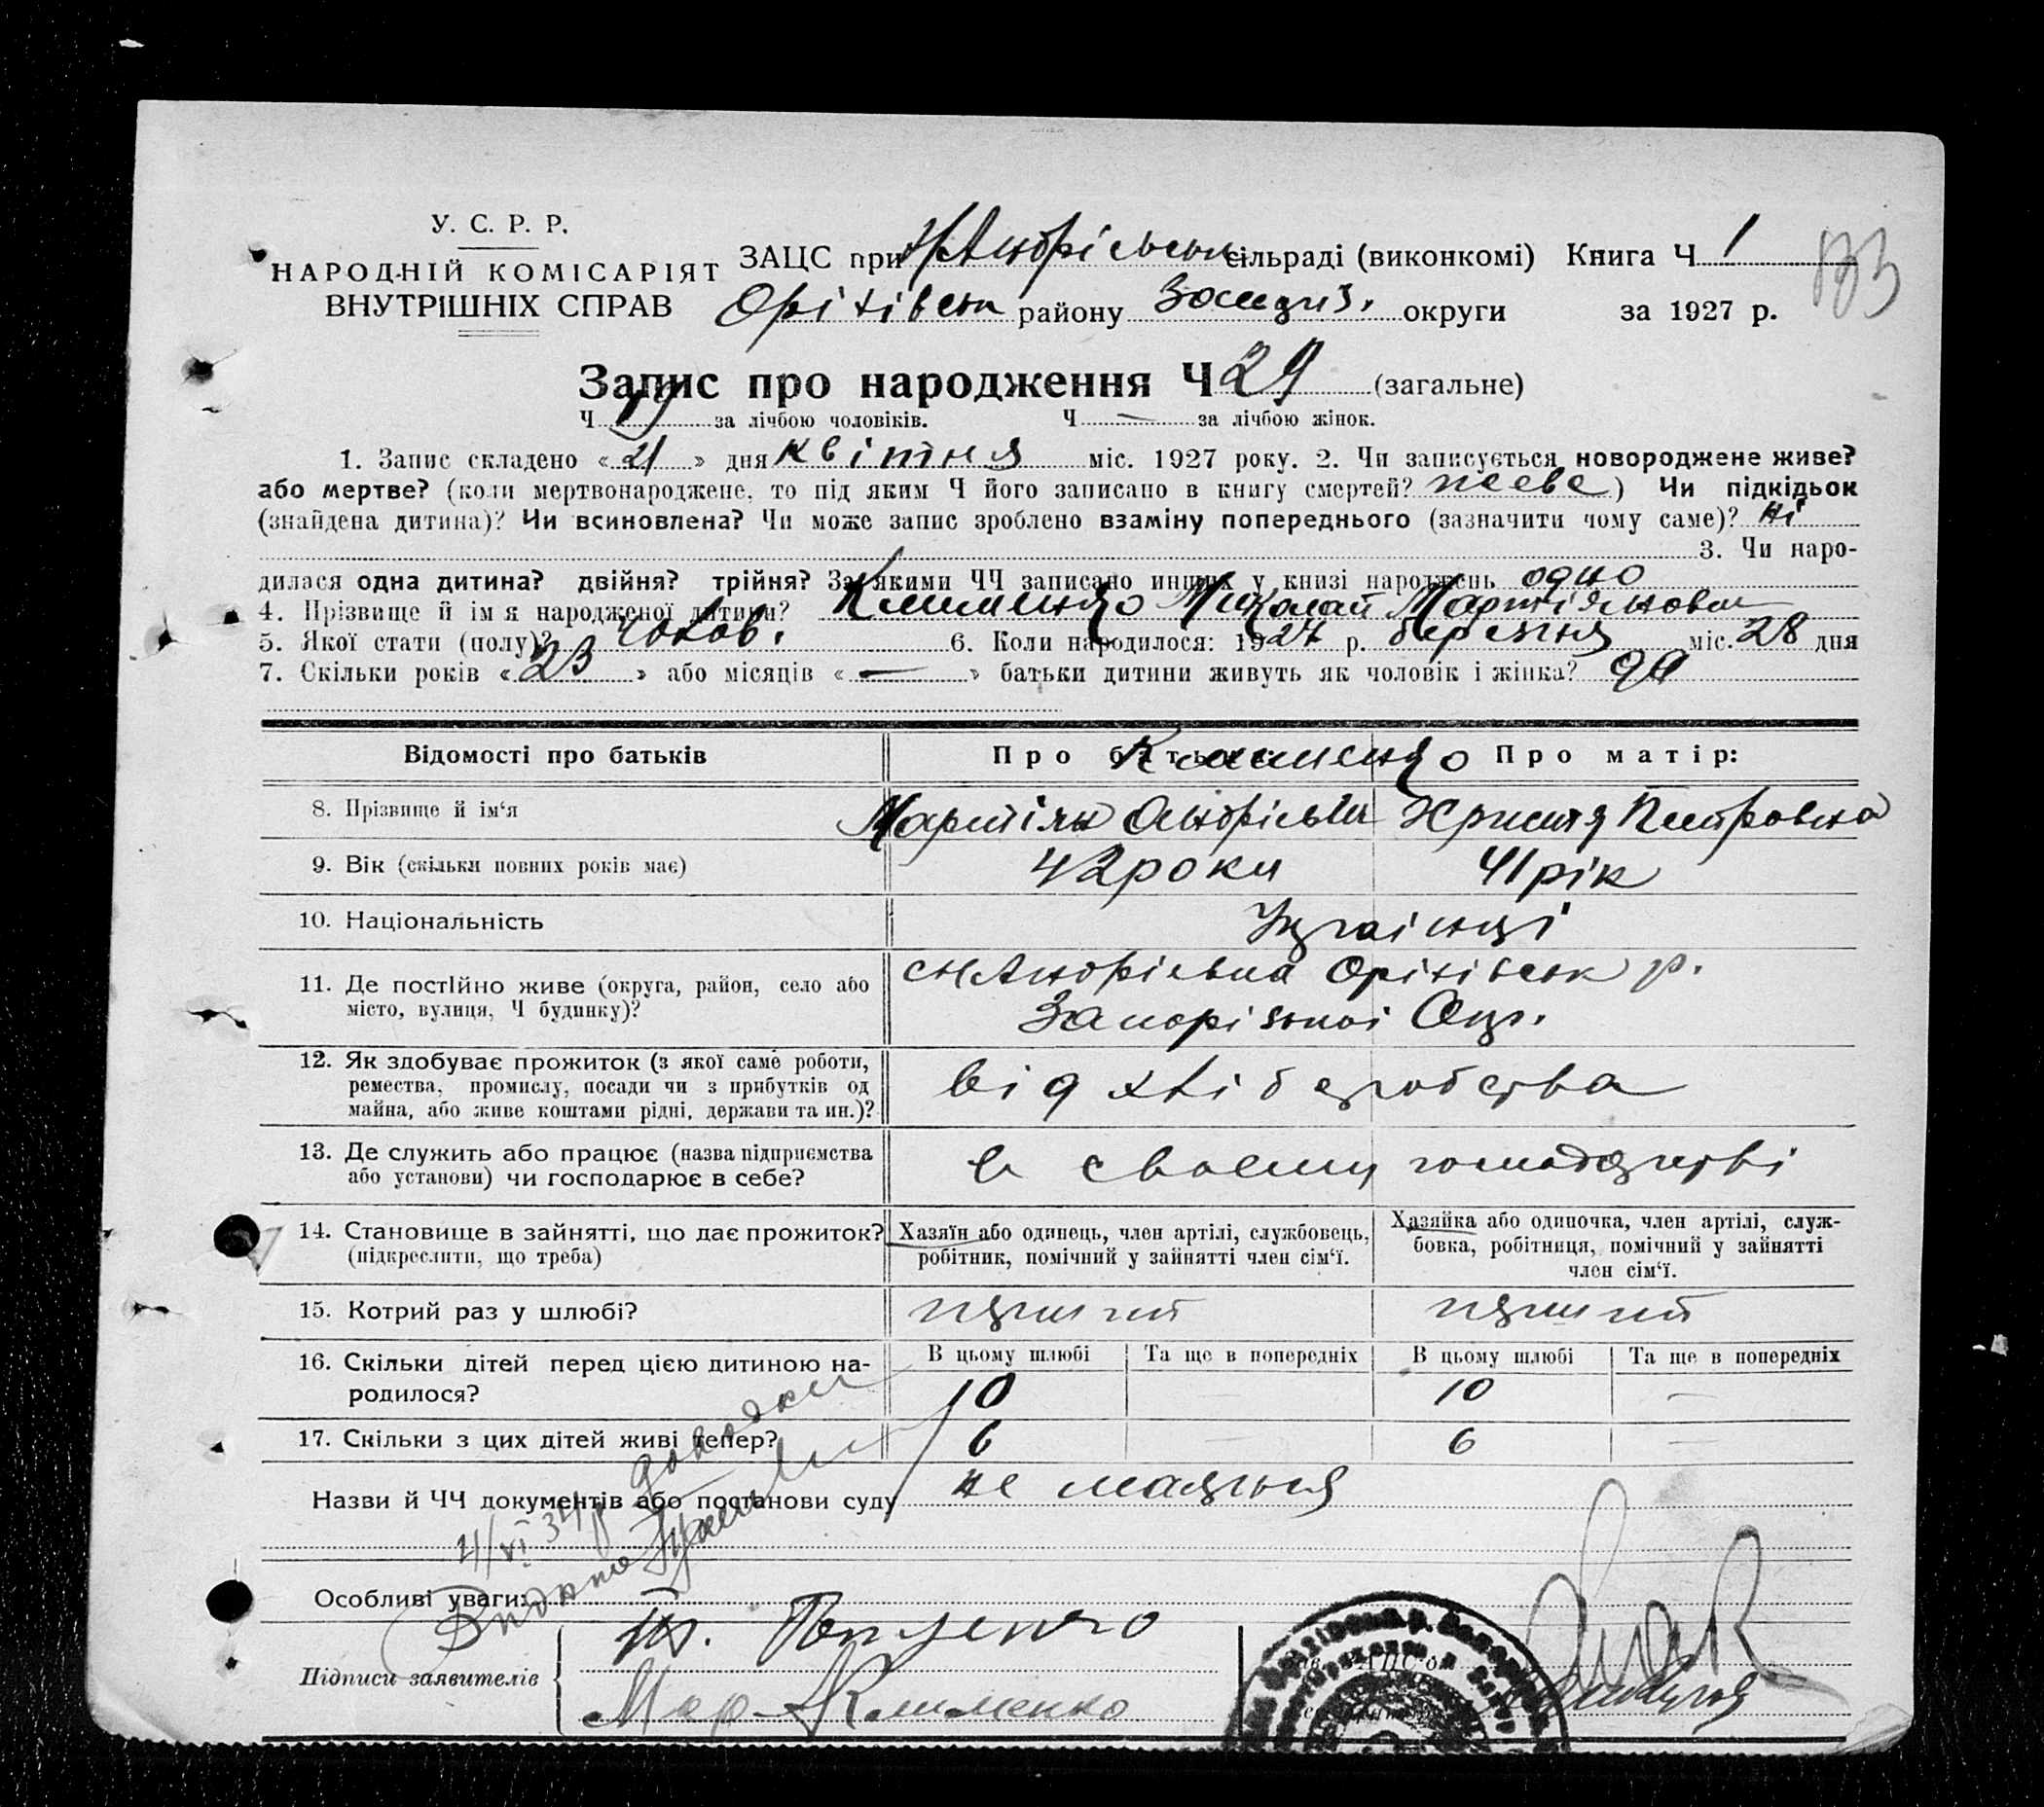 У. С. Р. Р.
НАРОДНІЙ КОМІСАРІЯТ
ВНУТРІШНІХ СПРАВ
ЗАЦС при сільраді (виконкомі) Книга Ч 1
133
району округи за 1927 р.
Запис про народження Ч 29 (загальне)
Ч 19 за лічбою чоловіків. Ч — за лічбою жінок.
1. Запис складено « 21 » дня квітня міс. 1927 року. 2. Чи записується новороджене живе?
або мертве? (коли мертвонароджене, то під яким Ч його записано в книгу смертей? живе) Чи підкідьок
(знайдена дитина)? Чи всиновлена? Чи може запис зроблено взаміну попереднього (зазначити чому саме)? ні
3. Чи наро-
дилася одна дитина? двійня? трійня? За якими ЧЧ записано инших у книзі народжень одно
4. Прізвище й ім'я народженої дитини? Клименко Миколай Мартіянович
5. Якої стати (полу)? чолов. 6. Коли народилося: 1927 р. березня міс. 28 дня
7. Скільки років « 23 » або місяців « — » батьки дитини живуть як чоловік і жінка? да
Відомості про батьків Про батька: Клименко Про матір:
8. Прізвище й ім'я Мартіян Андрієвич Христя Петровна
9. Вік (скільки повних років має) 42 роки 41 рік
10. Національність Українці
11. Де постійно живе (округа, район, село або
місто, вулиця, Ч будинку)? Оріхівськ р.
Запорізької Окр.
12. Як здобуває прожиток (з якої саме роботи,
ремества, промислу, посади чи з прибутків од
майна, або живе коштами рідні, держави та ин.)? від хліборобства
13. Де служить або працює (назва підприємства
або установи) чи господарює в себе? в своему господарстві
14. Становище в зайнятті, що дає прожиток?
(підкреслити, що треба)
Хазяїн або одинець, член артілі, службовець,
робітник, помічний у зайнятті член сім'ї.
Хазяйка або одиночка, член артілі, служ-
бовка, робітниця, помічний у зайнятті
член сім'ї.
15. Котрий раз у шлюбі? перший перший
16. Скільки дітей перед цією дитиною на-
родилося?
В цьому шлюбі Та ще в попередніх В цьому шлюбі Та ще в попередніх
10 — 10 —
17. Скільки з цих дітей живі тепер? 6 — 6 —
Назви й ЧЧ документів або постанови суду не мається
Видано
Особливі уваги:
Підписи заявителів
Мар Клименко